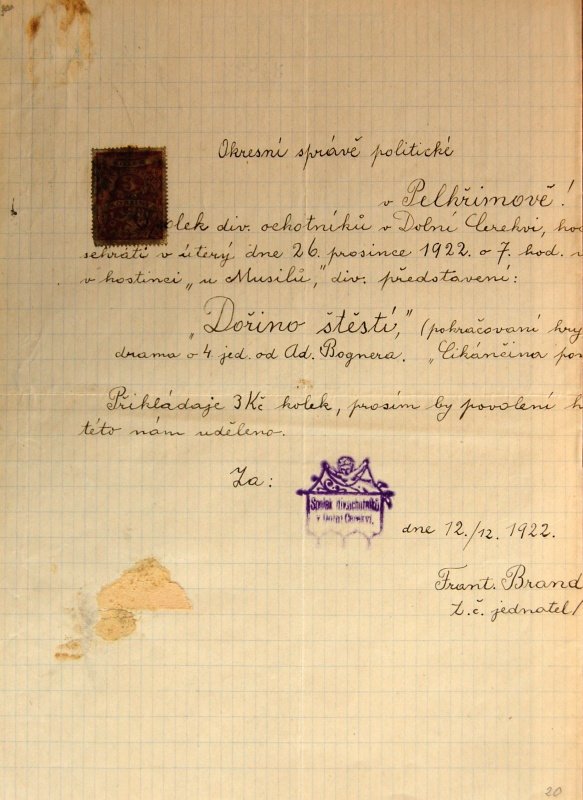 Okresní správě politické
v Pelhřimově!
olek div. ochotníků v Dolní Cerekvi, hod
sehráti v úterý dne 26. prosince 1922 o 7. hod. v
v hostinci „u Musilů,“ div. představení:
„Dořino štěstí,“ (pokračovaní hry
drama o 4 jed. od Ad. Bognera. „Cikánčina pom
Přikládaje 3 Kč kolek, prosím by povolení k
této nám uděleno.
Za:
Spolek div. ochotníků
v Dolní Cerekvi.
dne 12./12. 1922.
Frant. Brand
t. č. jednatel/
20